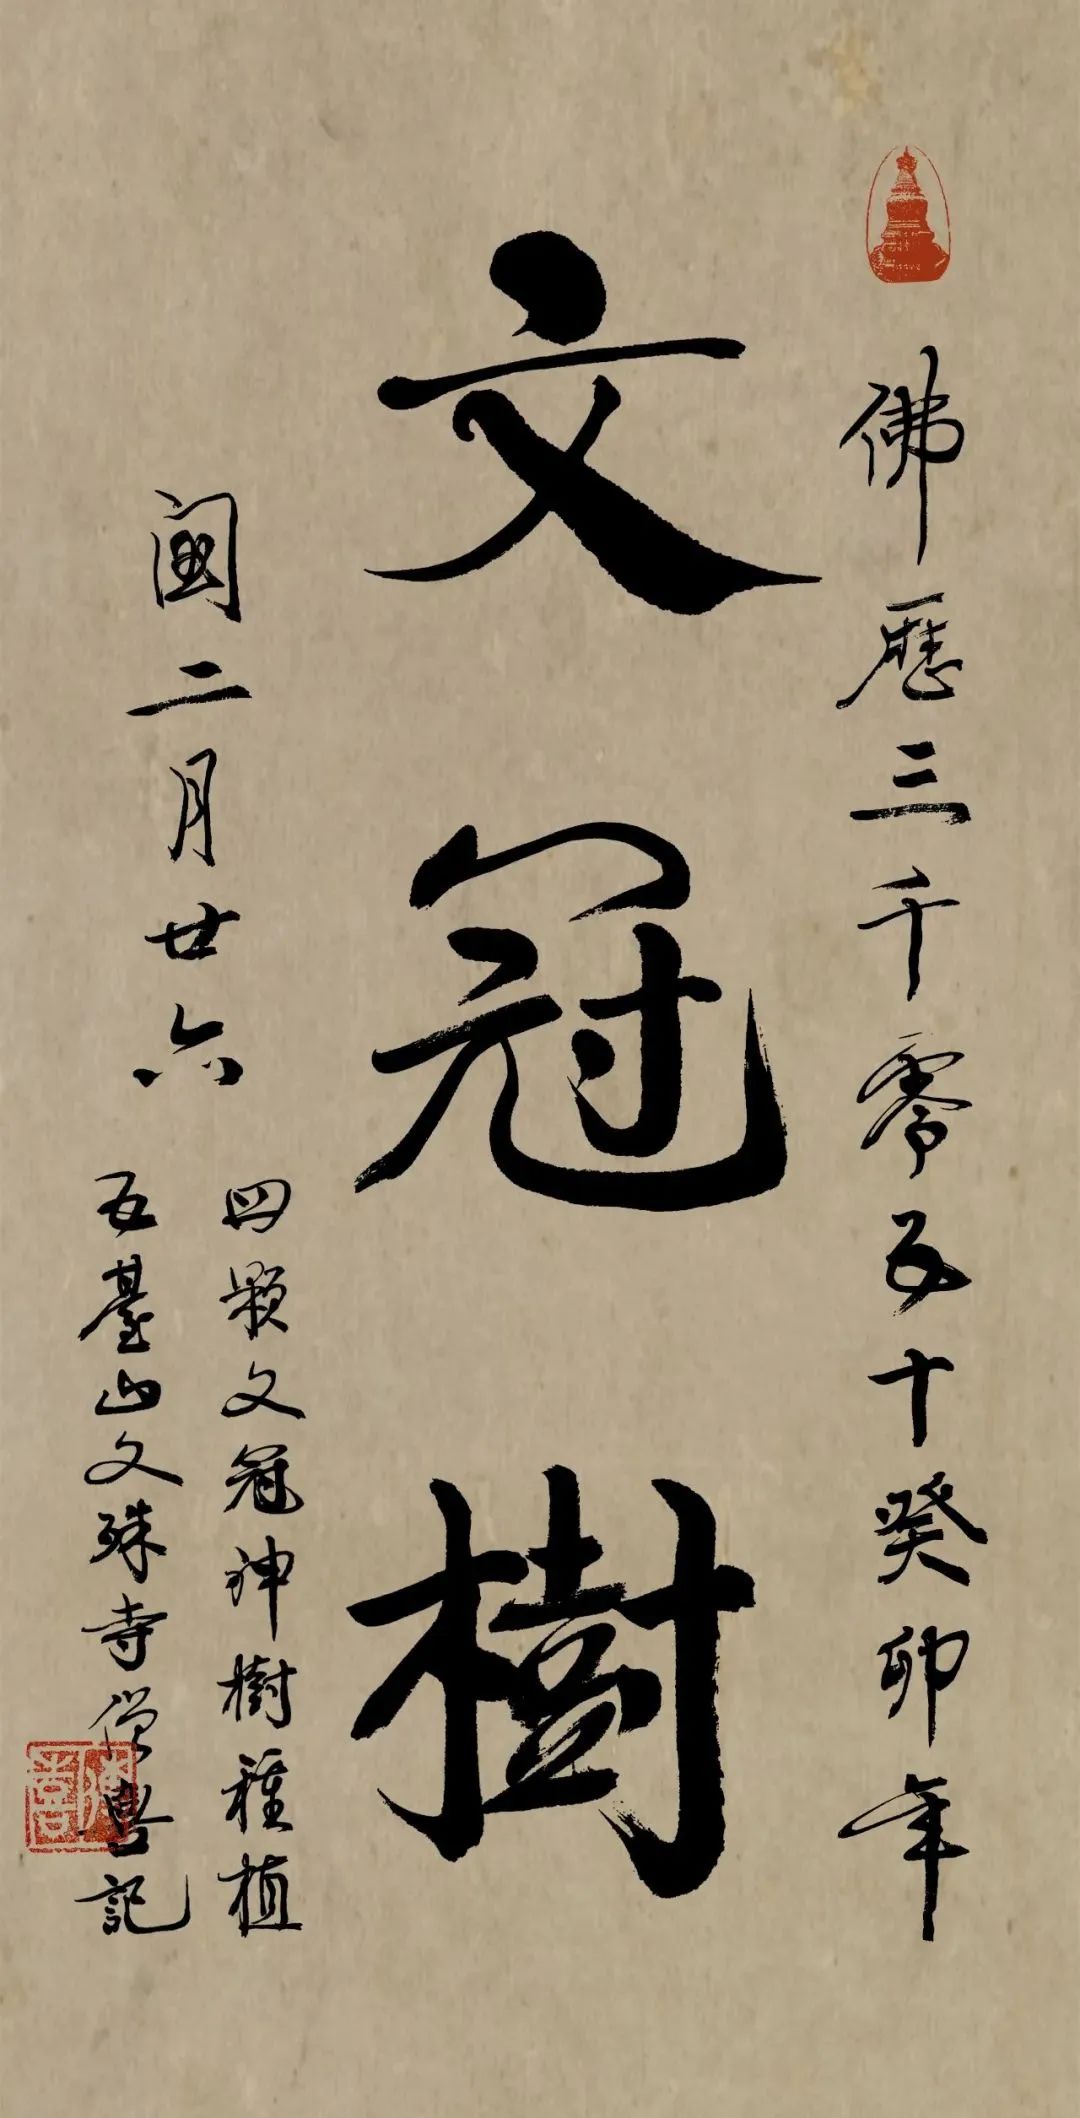 佛歷三千零五十癸卯年
文冠樹
閏二月廿六
四顆文冠神樹種植
五臺山文殊寺僧 記